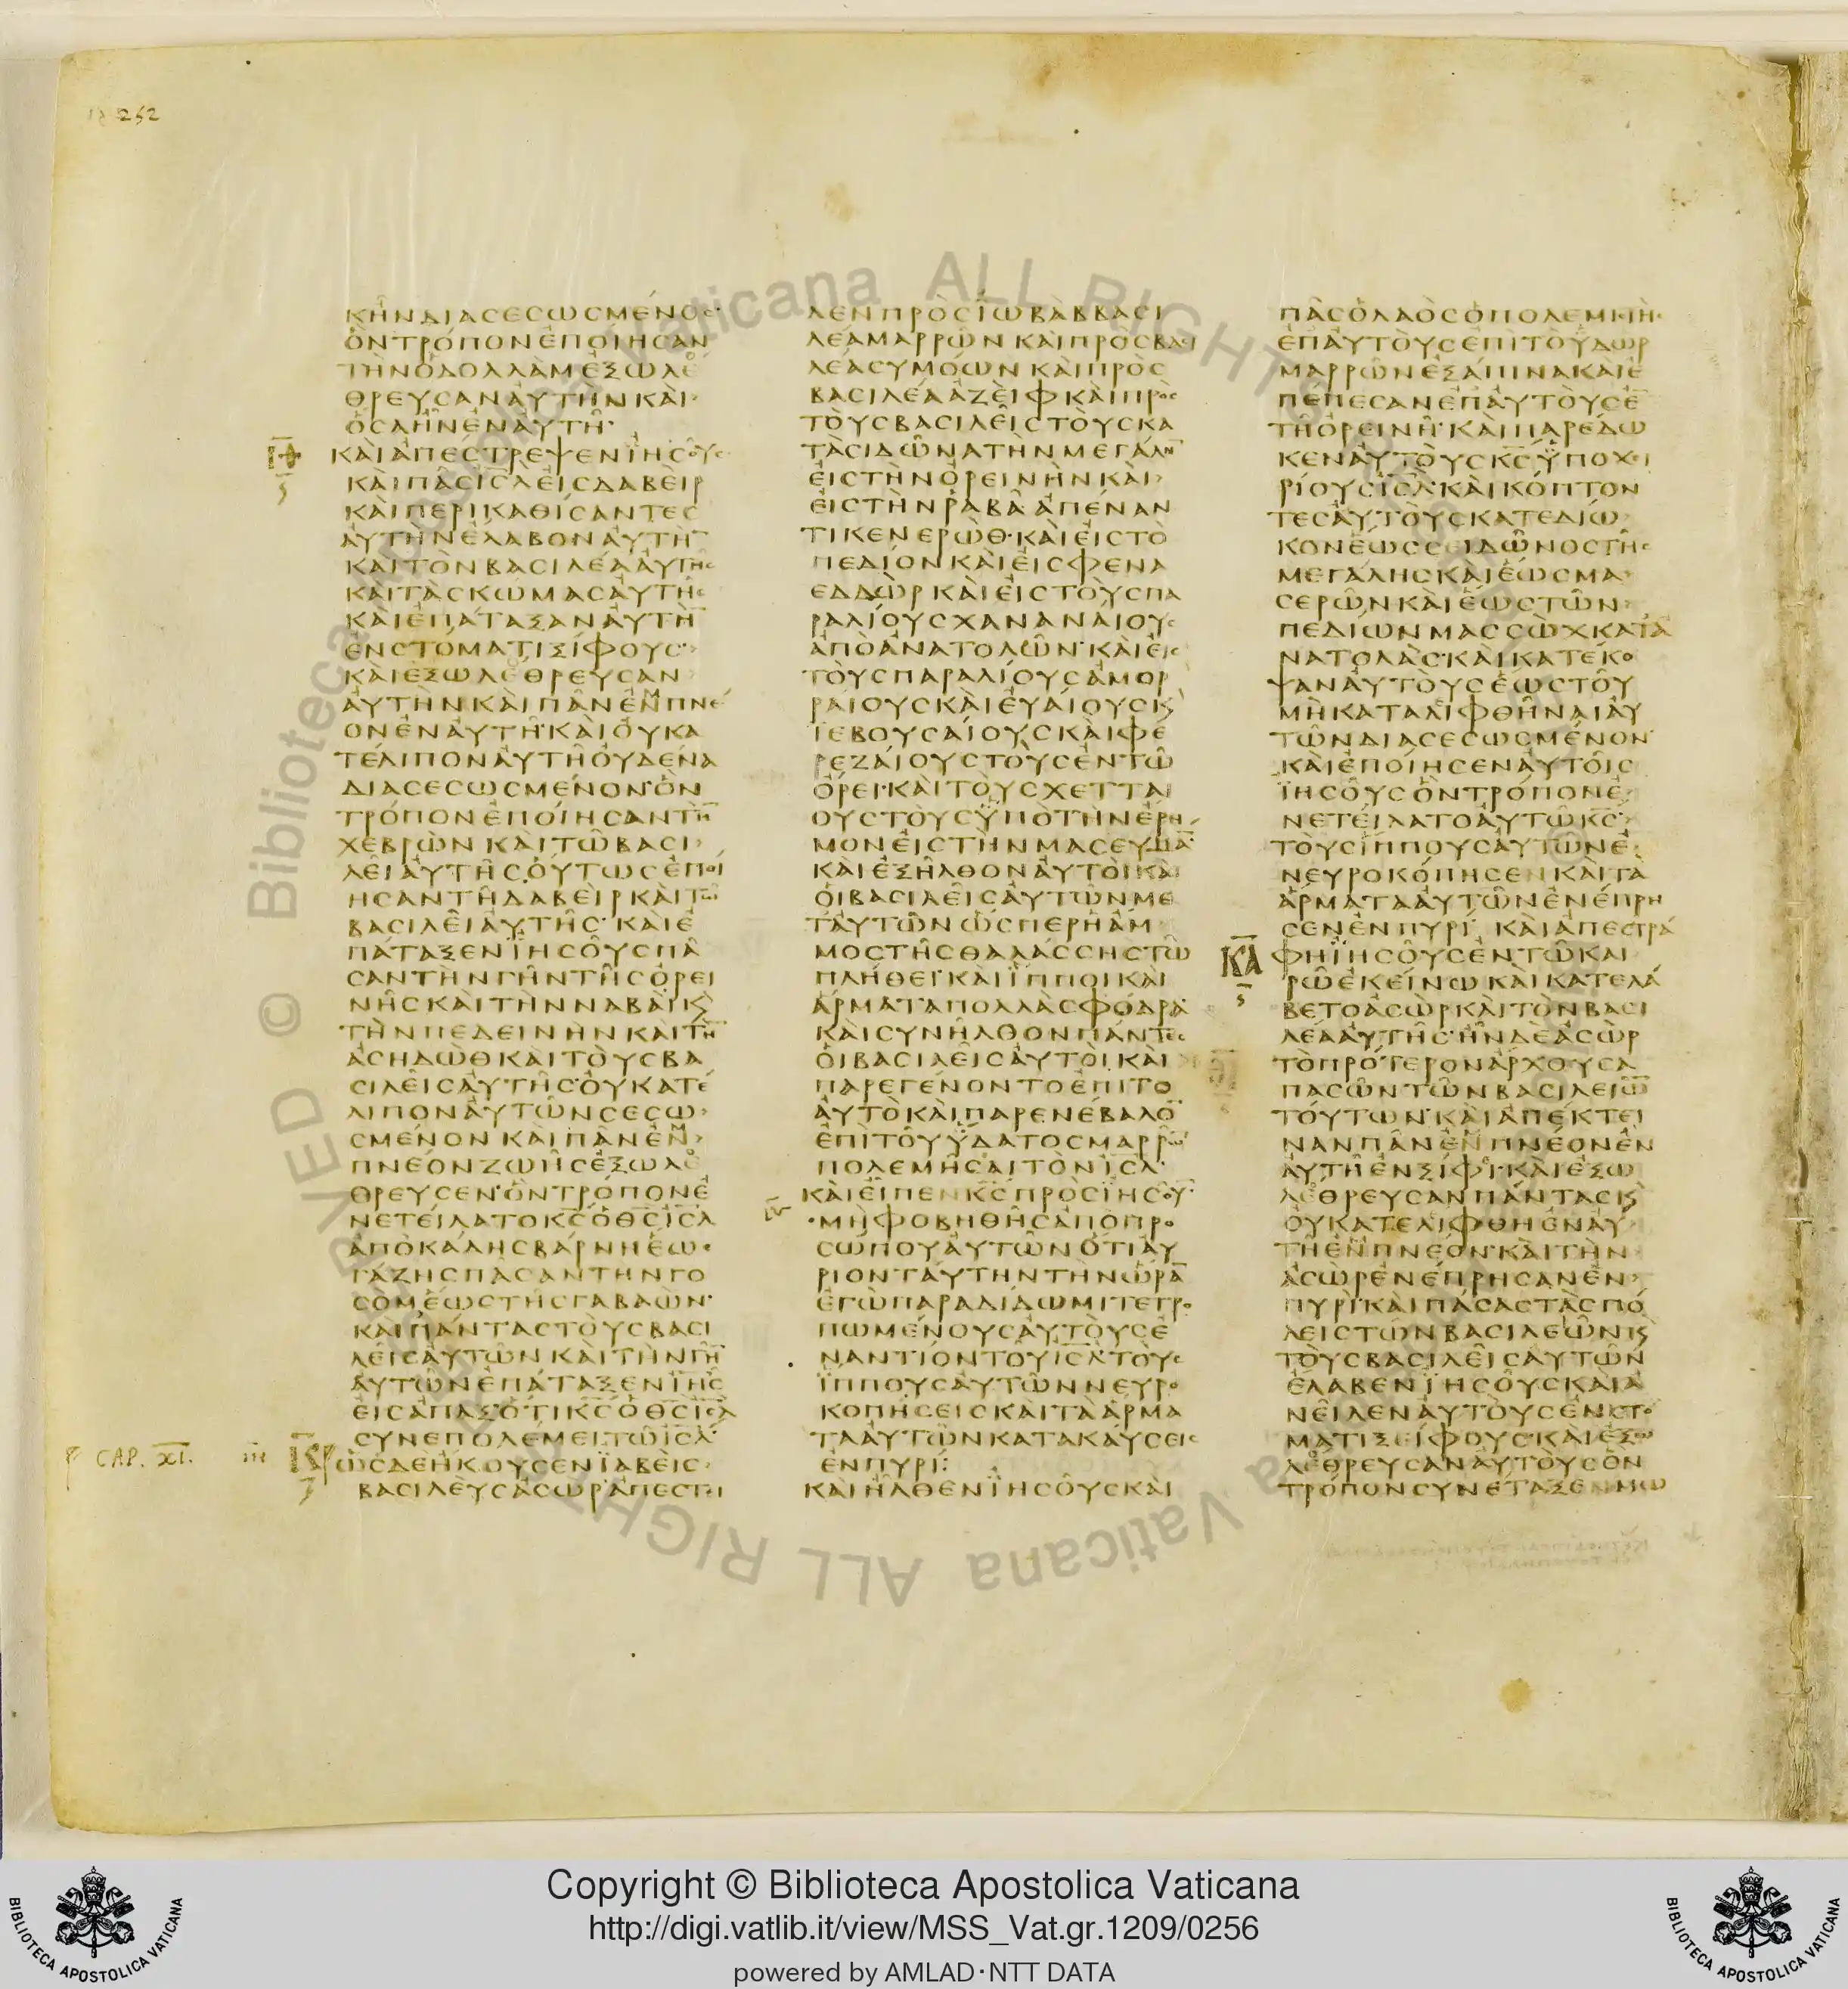 252
ΚΗΝΔΙΑϹΕϹΩϹΜΕΝΟϹ
ΟΝΤΡΟΠΟΝΕΠΟΙΗϹΑΝ
ΤΗΝΟΔΟΛΛΑΜΕΞΩΛΕ
ΘΡΕΥϹΑΝΑΥΤΗΝΚΑΙ
ΟϹΑΗΝΕΝΑΥΤΗ
ΚΑΙΑΠΕϹΤΡΕΨΕΝΙΗϹΟΥϹ
ΚΑΙΠΑϹΙϹΛΕΙϹΔΑΒΕΙΡ
ΚΑΙΠΕΡΙΚΑΘΙϹΑΝΤΕϹ
ΑΥΤΗΝΕΛΑΒΟΝΑΥΤΗ
ΚΑΙΤΟΝΒΑϹΙΛΕΑΑΥΤΗϹ
ΚΑΙΤΑϹΚΩΜΑϹΑΥΤΗϹ
ΚΑΙΕΠΑΤΑΞΑΝΑΥΤΗ
ΕΝϹΤΟΜΑΤΙΞΙΦΟΥϹ
ΚΑΙΕΞΩΛΕΘΡΕΥϹΑΝ
ΑΥΤΗΝΚΑΙΠΑΝΕΜΠΝΕ
ΟΝΕΝΑΥΤΗΚΑΙΟΥΚΑ
ΤΕΛΙΠΟΝΑΥΤΗΟΥΔΕΝΑ
ΔΙΑϹΕϹΩϹΜΕΝΟΝΟΝ
ΤΡΟΠΟΝΕΠΟΙΗϹΑΝΤΗ
ΧΕΒΡΩΝΚΑΙΤΩΒΑϹΙ
ΛΕΙΑΥΤΗϹΟΥΤΩϹΕΠΟΙ
ΗϹΑΝΤΗΔΑΒΕΙΡΚΑΙΤΩ
ΒΑϹΙΛΕΙΑΥΤΗϹΚΑΙΕ
ΠΑΤΑΞΕΝΙΗϹΟΥϹΠΑ
ϹΑΝΤΗΝΓΗΝΤΗϹΟΡΕΙ
ΝΗϹΚΑΙΤΗΝΝΑΒΑΙΚ
ΤΗΝΠΕΔΕΙΝΗΝΚΑΙΤΗ
ΑϹΗΔΩΘΚΑΙΤΟΥϹΒΑ
ϹΙΛΕΙϹΑΥΤΗϹΟΥΚΑΤΕ
ΛΙΠΟΝΑΥΤΩΝϹΕϹΩ
ϹΜΕΝΟΝΚΑΙΠΑΝΕΜ
ΠΝΕΟΝΖΩΗϹΕΞΩΛΕ
ΘΡΕΥϹΕΝΟΝΤΡΟΠΟΝΕ
ΝΕΤΕΙΛΑΤΟΚϹΟΘϹΙϹΛ
ΑΠΟΚΑΔΗϹΒΑΡΝΗΕΩϹ
ΓΑΖΗϹΠΑϹΑΝΤΗΝΓΟ
ϹΟΜΕΩϹΤΗϹΓΑΒΑΩΝ
ΚΑΙΠΑΝΤΑϹΤΟΥϹΒΑϹΙ
ΛΕΙϹΑΥΤΩΝΚΑΙΤΗΝΓΗ
ΑΥΤΩΝΕΠΑΤΑΞΕΝΙΗϹ
ΕΙϹΑΠΑΞΟΤΙΚϹΟΘϹΙϹΛ
ϹΥΝΕΠΟΛΕΜΕΙΤΩΙϹΛ
CAP. XI.
ΩϹΔΕΗΚΟΥϹΕΝΙΑΒΕΙϹ
ΒΑϹΙΛΕΥϹΑϹΩΡΑΠΕϹΤΙ
ΛΕΝΠΡΟϹΙΩΒΑΒΒΑϹΙ
ΛΕΑΜΑΡΡΩΝΚΑΙΠΡΟϹΒΑϹΙ
ΛΕΑϹΥΜΟΩΝΚΑΙΠΡΟϹ
ΒΑϹΙΛΕΑΑΖΕΙΦΚΑΙΠΡΟϹ
ΤΟΥϹΒΑϹΙΛΕΙϹΤΟΥϹΚΑ
ΤΑϹΙΔΩΝΑΤΗΝΜΕΓΑΛΗ
ΕΙϹΤΗΝΟΡΕΙΝΗΝΚΑΙ
ΕΙϹΤΗΝΡΑΒΑΑΠΕΝΑΝ
ΤΙΚΕΝΕΡΩΘΚΑΙΕΙϹΤΟ
ΠΕΔΙΟΝΚΑΙΕΙϹΦΕΝΑ
ΕΔΔΩΡΚΑΙΕΙϹΤΟΥϹΠΑ
ΡΑΛΙΟΥϹΧΑΝΑΝΑΙΟΥϹ
ΑΠΟΑΝΑΤΟΛΩΝΚΑΙΕΙϹ
ΤΟΥϹΠΑΡΑΛΙΟΥϹΑΜΟΡ
ΡΑΙΟΥϹΚΑΙΕΥΑΙΟΥϹΚ
ΙΕΒΟΥϹΑΙΟΥϹΚΑΙΦΕ
ΡΕΖΑΙΟΥϹΤΟΥϹΕΝΤΩ
ΟΡΕΙΚΑΙΤΟΥϹΧΕΤΤΑΙ
ΟΥϹΤΟΥϹΥΠΟΤΗΝΕΡΗ
ΜΟΝΕΙϹΤΗΝΜΑϹΕΥΜΑ
ΚΑΙΕΞΗΛΘΟΝΑΥΤΟΙΚΑΙ
ΟΙΒΑϹΙΛΕΙϹΑΥΤΩΝΜΕ
ΤΑΥΤΩΝΩϹΠΕΡΗΑΜ
ΜΟϹΤΗϹΘΑΛΑϹϹΗϹΤΩ
ΠΛΗΘΕΙΚΑΙΙΠΠΟΙΚΑΙ
ΑΡΜΑΤΑΠΟΛΛΑϹΦΟΔΡΑ
ΚΑΙϹΥΝΗΛΘΟΝΠΑΝΤΕϹ
ΟΙΒΑϹΙΛΕΙϹΑΥΤΟΙΚΑΙ
ΠΑΡΕΓΕΝΟΝΤΟΕΠΙΤΟ
ΑΥΤΟΚΑΙΠΑΡΕΝΕΒΑΛΟ
ΕΠΙΤΟΥΥΔΑΤΟϹΜΑΡΡΩ
ΠΟΛΕΜΗϹΑΙΤΟΝΙϹΛ
ΚΑΙΕΙΠΕΝΚϹΠΡΟϹΙΗϹΟΥ
ΜΗΦΟΒΗΘΗϹΑΠΟΠΡΟ
ϹΩΠΟΥΑΥΤΩΝΟΤΙΑΥ
ΡΙΟΝΤΑΥΤΗΝΤΗΝΩΡΑ
ΕΓΩΠΑΡΑΔΙΔΩΜΙΤΕΤΡΟ
ΠΩΜΕΝΟΥϹΑΥΤΟΥϹΕ
ΝΑΝΤΙΟΝΤΟΥΙϹΛΤΟΥϹ
ΙΠΠΟΥϹΑΥΤΩΝΝΕΥΡΟ
ΚΟΠΗϹΕΙϹΚΑΙΤΑΑΡΜΑ
ΤΑΑΥΤΩΝΚΑΤΑΚΑΥϹΕΙϹ
ΕΝΠΥΡΙ:
ΚΑΙΗΛΘΕΝΙΗϹΟΥϹΚΑΙ
ΠΑϹΟΛΑΟϹΟΠΟΛΕΜΙϹΤΗϹ
ΕΠΑΥΤΟΥϹΕΠΙΤΟΥΔΩΡ
ΜΑΡΡΩΝΕΞΑΠΙΝΑΚΑΙΕ
ΠΕΠΕϹΑΝΕΠΑΥΤΟΥϹΕ
ΤΗΟΡΕΙΝΗΚΑΙΠΑΡΕΔΩ
ΚΕΝΑΥΤΟΥϹΚϹΥΠΟΧΕΙ
ΡΙΟΥϹΙϹΛΚΑΙΚΟΠΤΟΝ
ΤΕϹΑΥΤΟΥϹΚΑΤΕΔΙΩ
ΚΟΝΕΩϹϹΕΙΔΩΝΟϹΤΗϹ
ΜΕΓΑΛΗϹΚΑΙΕΩϹΜΑ
ϹΕΡΩΝΚΑΙΕΩϹΤΩΝ
ΠΕΔΙΩΝΜΑϹϹΩΧΚΑΤΑ
ΝΑΤΟΛΑϹΚΑΙΚΑΤΕΚΟ
ΨΑΝΑΥΤΟΥϹΕΩϹΤΟΥ
ΜΗΚΑΤΑΛΙΦΘΗΝΑΙΑΥ
ΤΩΝΔΙΑϹΕϹΩϹΜΕΝΟΝ
ΚΑΙΕΠΟΙΗϹΕΝΑΥΤΟΙϹ
ΙΗϹΟΥϹΟΝΤΡΟΠΟΝΕ
ΝΕΤΕΙΛΑΤΟΑΥΤΩΚϹ
ΤΟΥϹΙΠΠΟΥϹΑΥΤΩΝΕ
ΝΕΥΡΟΚΟΠΗϹΕΝΚΑΙΤΑ
ΑΡΜΑΤΑΑΥΤΩΝΕΝΕΠΡΗ
ϹΕΝΕΝΠΥΡΙ ΚΑΙΑΠΕϹΤΡΑ
ΚΑ ΦΗΙΗϹΟΥϹΕΝΤΩΚΑΙ
ΡΩΕΚΕΙΝΩΚΑΙΚΑΤΕΛΑ
ΒΕΤΟΑϹΩΡΚΑΙΤΟΝΒΑϹΙ
ΛΕΑΑΥΤΗϹΗΝΔΕΑϹΩΡ
ΤΟΠΡΟΤΕΡΟΝΑΡΧΟΥϹΑ
ΠΑϹΩΝΤΩΝΒΑϹΙΛΕΙΩ
ΤΟΥΤΩΝΚΑΙΑΠΕΚΤΕΙ
ΝΑΝΠΑΝΕΝΠΝΕΟΝΕΝ
ΑΥΤΗΕΝΞΙΦΙΚΑΙΕΞΩ
ΛΕΘΡΕΥϹΑΝΠΑΝΤΑϹΚ
ΟΥΚΑΤΕΛΙΦΘΗΕΝΑΥ
ΤΗΕΝΠΝΕΟΝΚΑΙΤΗΝ
ΑϹΩΡΕΝΕΠΡΗϹΑΝΕΝ
ΠΥΡΙΚΑΙΠΑϹΑϹΤΑϹΠΟ
ΛΕΙϹΤΩΝΒΑϹΙΛΕΩΝΚ
ΤΟΥϹΒΑϹΙΛΕΙϹΑΥΤΩΝ
ΕΛΑΒΕΝΙΗϹΟΥϹΚΑΙΑ
ΝΕΙΛΕΝΑΥΤΟΥϹΕΝϹΤΟ
ΜΑΤΙΞΕΙΦΟΥϹΚΑΙΕΞΩ
ΛΕΘΡΕΥϹΑΝΑΥΤΟΥϹΟΝ
ΤΡΟΠΟΝϹΥΝΕΤΑΞΕΝΜΩ
Biblioteca Apostolica Vaticana ALL RIGHTS RESERVED ©
Copyright © Biblioteca Apostolica Vaticana
http://digi.vatlib.it/view/MSS_Vat.gr.1209/0256
powered by AMLAD·NTT DATA
BIBLIOTECA APOSTOLICA VATICANA
BIBLIOTECA APOSTOLICA VATICANA